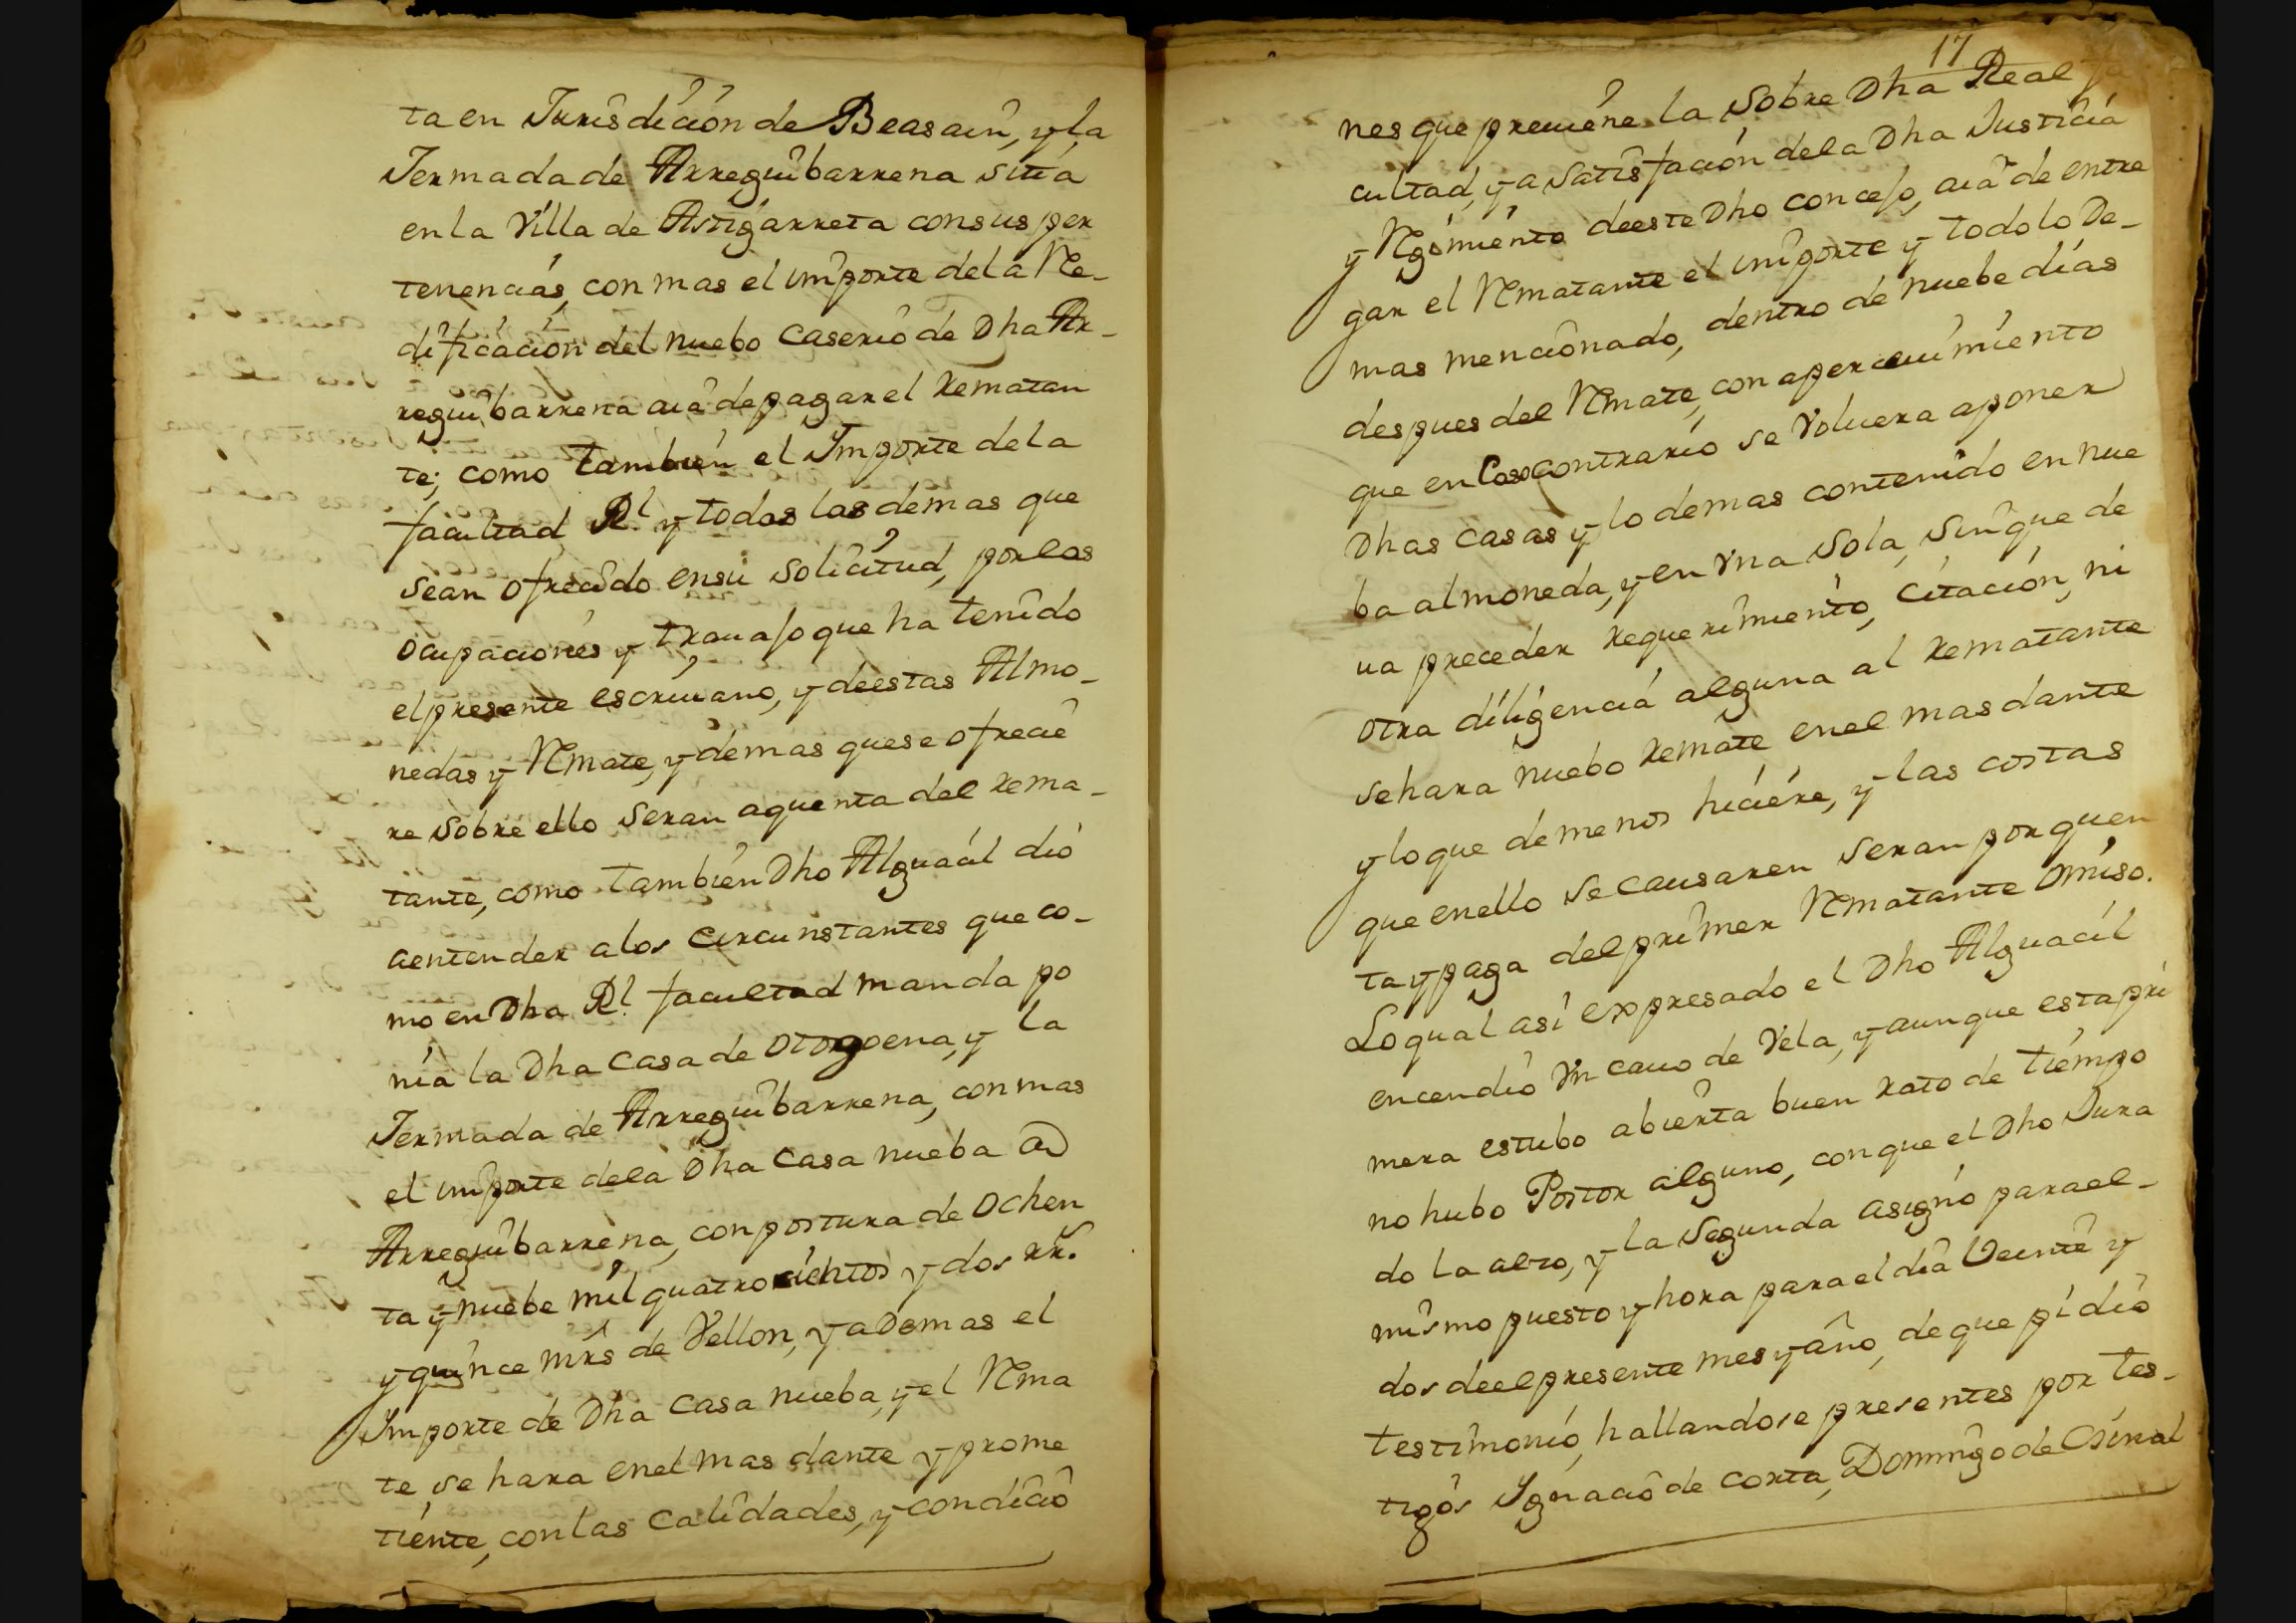 ta en Jurisdición de Beasain, y la
Jermada de Arreguibarrena sitta
en la Villa de Astigarreta con sus per
tenencias, con mas el importe de la Re-
dificación del nuebo caserio de Dha Ar-
reguibarrena aia de pagar el rematan
te; como tambien el Importe de la
facultad Rl. y todas las demas que
sean ofrecido en su solicitud, por las
ocupaciones y trauajo que ha tenido
el presente escriuano, y deestas Almo-
nedas y Rmate, y demas que se ofrecie
re sobre ello seran a quenta del rema-
tante, como tambien Dho Alguacil dió
aentender a los circunstantes que co-
mo en Dha Rl. facultad manda po
nia la Dha Casa de Otogoena, y la
Jermada de Arreguibarrena, con mas
el importe dela Dha Casa nueba
Arreguibarrena, con postura de Ochen
ta y nuebe mil quatrocientos y dos rrs.
y quince mrs de Vellon, y ademas el
Importe de Dha Casa nueba, y el Rma
te, se hara en el mas dante y prome
tiente, con las calidades, y condicio
17
nes que preuiene la sobre Dha Real fa
cultad, y a satisfación de la Dha Justicia
y Rgimiento deeste Dho concejo, aiã de entre
gar el Rmatante el importe y todo lo De-
mas mencionado, dentro de nuebe dias
despues del Rmate, con aperceuimiento
que en Caso contrario se Voluera aponer
Dhas casas y lo demas contenido en nue
ba almoneda, y en Vna sola, sin que de
ua preceder requerimiento, Citación, ni
otra diligencia alguna al rematante
se hara nuebo remate en el mas dante
y lo que de menos hiciere, y las costas
que en ello se causaren seran por quen
ta y paga del primer Rmatante Omiso.
Lo qual asi expresado el Dho Alguacil
encendió Vn cauo de Vela, y aunque esta pri
mera estubo abierta buen rato de tiempo
no hubo Postor alguno, con que el Dho Jura
do la alzo, y la segunda asignó para el-
mismo puesto y hora para el dia Veinte y
dos deel presente mes y año, de que pidió
testimonio, hallandose presentes por tes-
tigos Ygnacio de corta, Domingo de Osinal